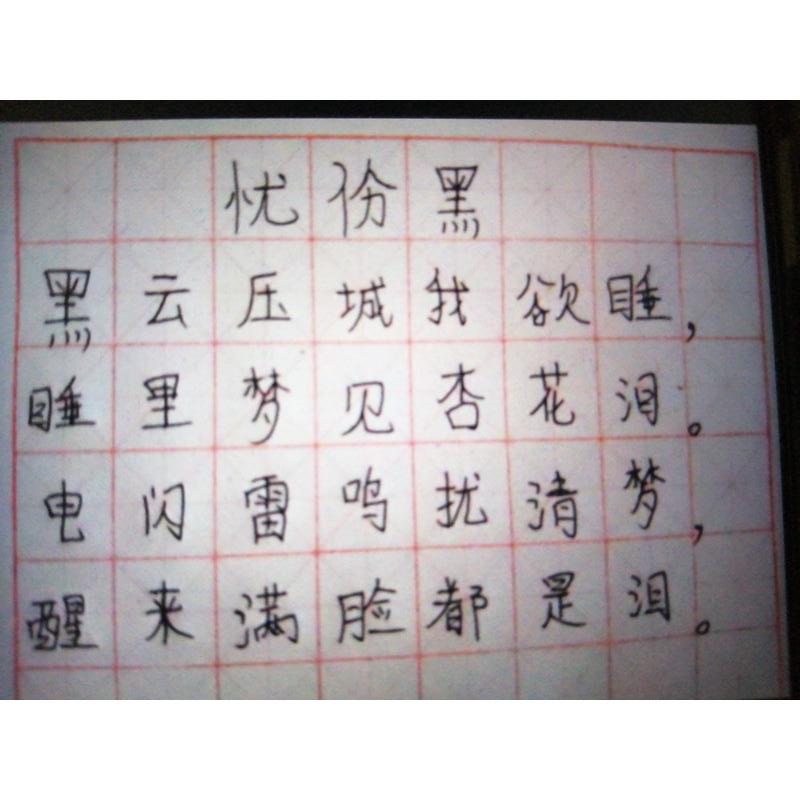 忧份黑
黑云压城我欲睡，
睡里梦见杏花泪。
电闪雷鸣扰清梦，
醒来满脸都是泪。